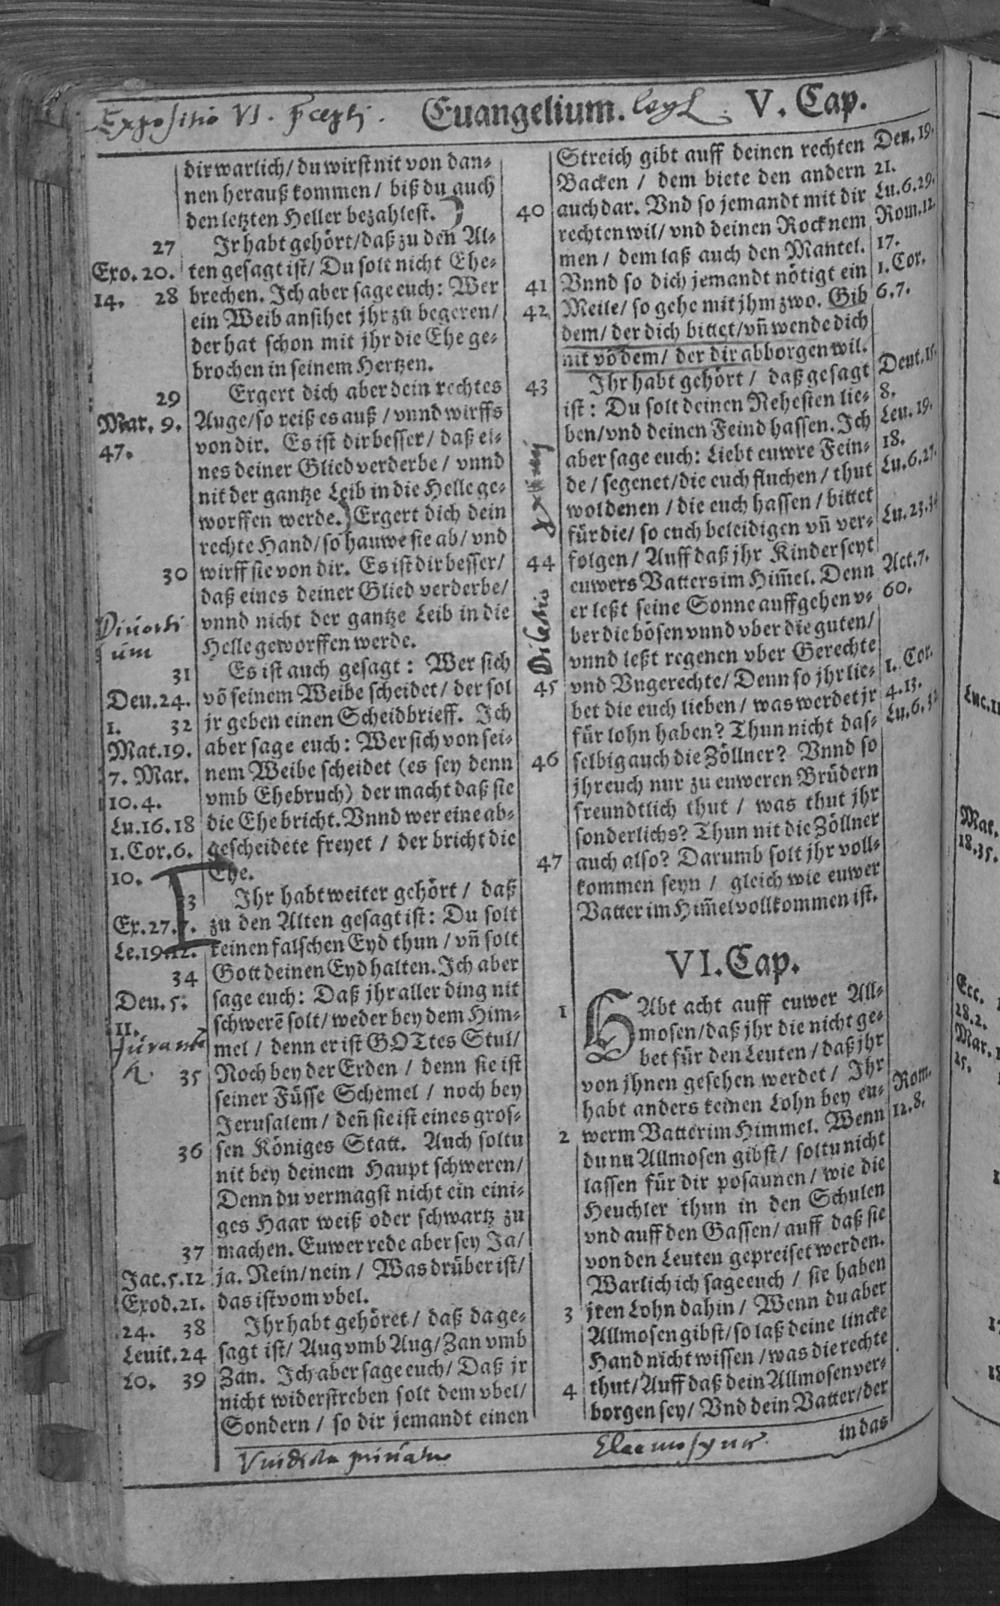 Expositio VI. Euangelium. V. Cap.
dir warlich/ du wirst nit von dan-
nen herauß kommen/ biß du auch
den letzten Heller bezahlest.
27 Ir habt gehört/ daß zu den Al-
Exo. 20. ten gesagt ist/ Du solt nicht Ehe-
14. 28 brechen. Ich aber sage euch: Wer
ein Weib ansihet jhr zu begeren/
der hat schon mit jhr die Ehe ge-
brochen in seinem Hertzen.
29 Ergert dich aber dein rechtes
Mar. 9. Auge/ so reiß es auß/ vnnd wirffs
47. von dir. Es ist dir besser/ daß ei-
nes deiner Glied verderbe/ vnnd
nit der gantze Leib in die Helle ge-
worffen werde. Ergert dich dein
rechte Hand/ so hauwe sie ab/ vnd
30 wirff sie von dir. Es ist dir besser/
daß eines deiner Glied verderbe/
vnnd nicht der gantze Leib in die
Helle geworffen werde.
31 Es ist auch gesagt: Wer sich
Deu. 24. võ seinem Weibe scheidet/ der sol
1. 32 jr geben einen Scheidbrieff. Ich
Mat. 19. aber sage euch: Wer sich von sei-
7. Mar. nem Weibe scheidet (es sey denn
10. 4. vmb Ehebruch) der macht daß sie
Lu. 16. 18 die Ehe bricht. Vnnd wer eine ab-
1. Cor. 6. gescheidete freyet/ der bricht die
10. Ehe.
33 Ihr habt weiter gehört/ daß
Ex. 27. 7. zu den Alten gesagt ist: Du solt
Le. 19. 12. keinen falschen Eyd thun/ vñ solt
34 Gott deinen Eyd halten. Ich aber
Deu. 5. sage euch: Daß jhr aller ding nit
11. schwerẽ solt/ weder bey dem Him-
mel/ denn er ist GOTtes Stul/
35 Noch bey der Erden/ denn sie ist
seiner Füsse Schemel/ noch bey
Jerusalem/ deñ sie ist eines gros-
36 sen Königes Statt. Auch soltu
nit bey deinem Haupt schweren/
Denn du vermagst nicht ein eini-
ges Haar weiß oder schwartz zu
37 machen. Euwer rede aber sey Ja/
Jac. 5. 12 ja. Nein/ nein/ Was drüber ist/
Exod. 21. das ist vom vbel.
24. 38 Ihr habt gehöret/ daß da ge-
Leuit. 24 sagt ist/ Aug vmb Aug/ Zan vmb
20. 39 Zan. Ich aber sage euch/ Daß jr
nicht widerstreben solt dem vbel/
Sondern/ so dir jemandt einen
Streich gibt auff deinen rechten Deu. 19.
Backen/ dem biete den andern 21.
40 auch dar. Vnd so jemandt mit dir Lu. 6. 29.
rechten wil/ vnd deinen Rock nem Rom. 12.
men/ dem laß auch den Mantel. 17.
41 Vnnd so dich jemandt nötigt ein 1. Cor.
42 Meile/ so gehe mit jhm zwo. Gib 6. 7.
dem/ der dich bittet/ vñ wende dich
nit võ dem/ der dir abborgen wil.
43 Ihr habt gehört/ daß gesagt Deut. 15.
ist: Du solt deinen Nehesten lie- 8.
ben/ vnd deinen Feind hassen. Ich Leu. 19.
aber sage euch: Liebt euwre Fein- 18.
de/ segenet/ die euch fluchen/ thut Lu. 6. 27.
wol denen/ die euch hassen/ bittet
für die/ so euch beleidigen vñ ver- Lu. 23. 34
44 folgen/ Auff daß jhr Kinder seyt
euwers Vatters im Him̃el. Denn Act. 7.
er leßt seine Sonne auffgehen v- 60.
ber die bösen vnnd vber die guten/
vnnd leßt regenen vber Gerechte
45 vnd Vngerechte/ Denn so jhr lie- 1. Cor.
bet die euch lieben/ was werdet jr 4. 13.
für lohn haben? Thun nicht das- Lu. 6. 32
46 selbig auch die Zöllner? Vnnd so
jhr euch nur zu euweren Brüdern
freundtlich thut/ was thut jhr
sonderlichs? Thun nit die Zöllner
47 auch also? Darumb solt jhr voll-
kommen seyn/ gleich wie euwer
Vatter im Him̃el vollkommen ist.
VI. Cap.
1 HAbt acht auff euwer All-
mosen/ daß jhr die nicht ge-
bet für den Leuten/ daß jhr
von jhnen gesehen werdet/ Ihr Rom.
habt anders keinen Lohn bey eu- 12. 8.
2 werm Vatter im Himmel. Wenn
du nu Allmosen gibst/ soltu nicht
lassen für dir posaunen/ wie die
Heuchler thun in den Schulen
vnd auff den Gassen/ auff daß sie
von den Leuten gepreiset werden.
Warlich ich sage euch/ sie haben
3 jren Lohn dahin/ Wenn du aber
Allmosen gibst/ so laß deine lincke
Hand nicht wissen/ was die rechte
4 thut/ Auff daß dein Allmosen ver-
borgen sey/ Vnd dein Vatter/ der
in das
Eleemosyna
Luc. 11
Mat.
18. 35.
Ecc.
28. 2.
Mar. 1
25.